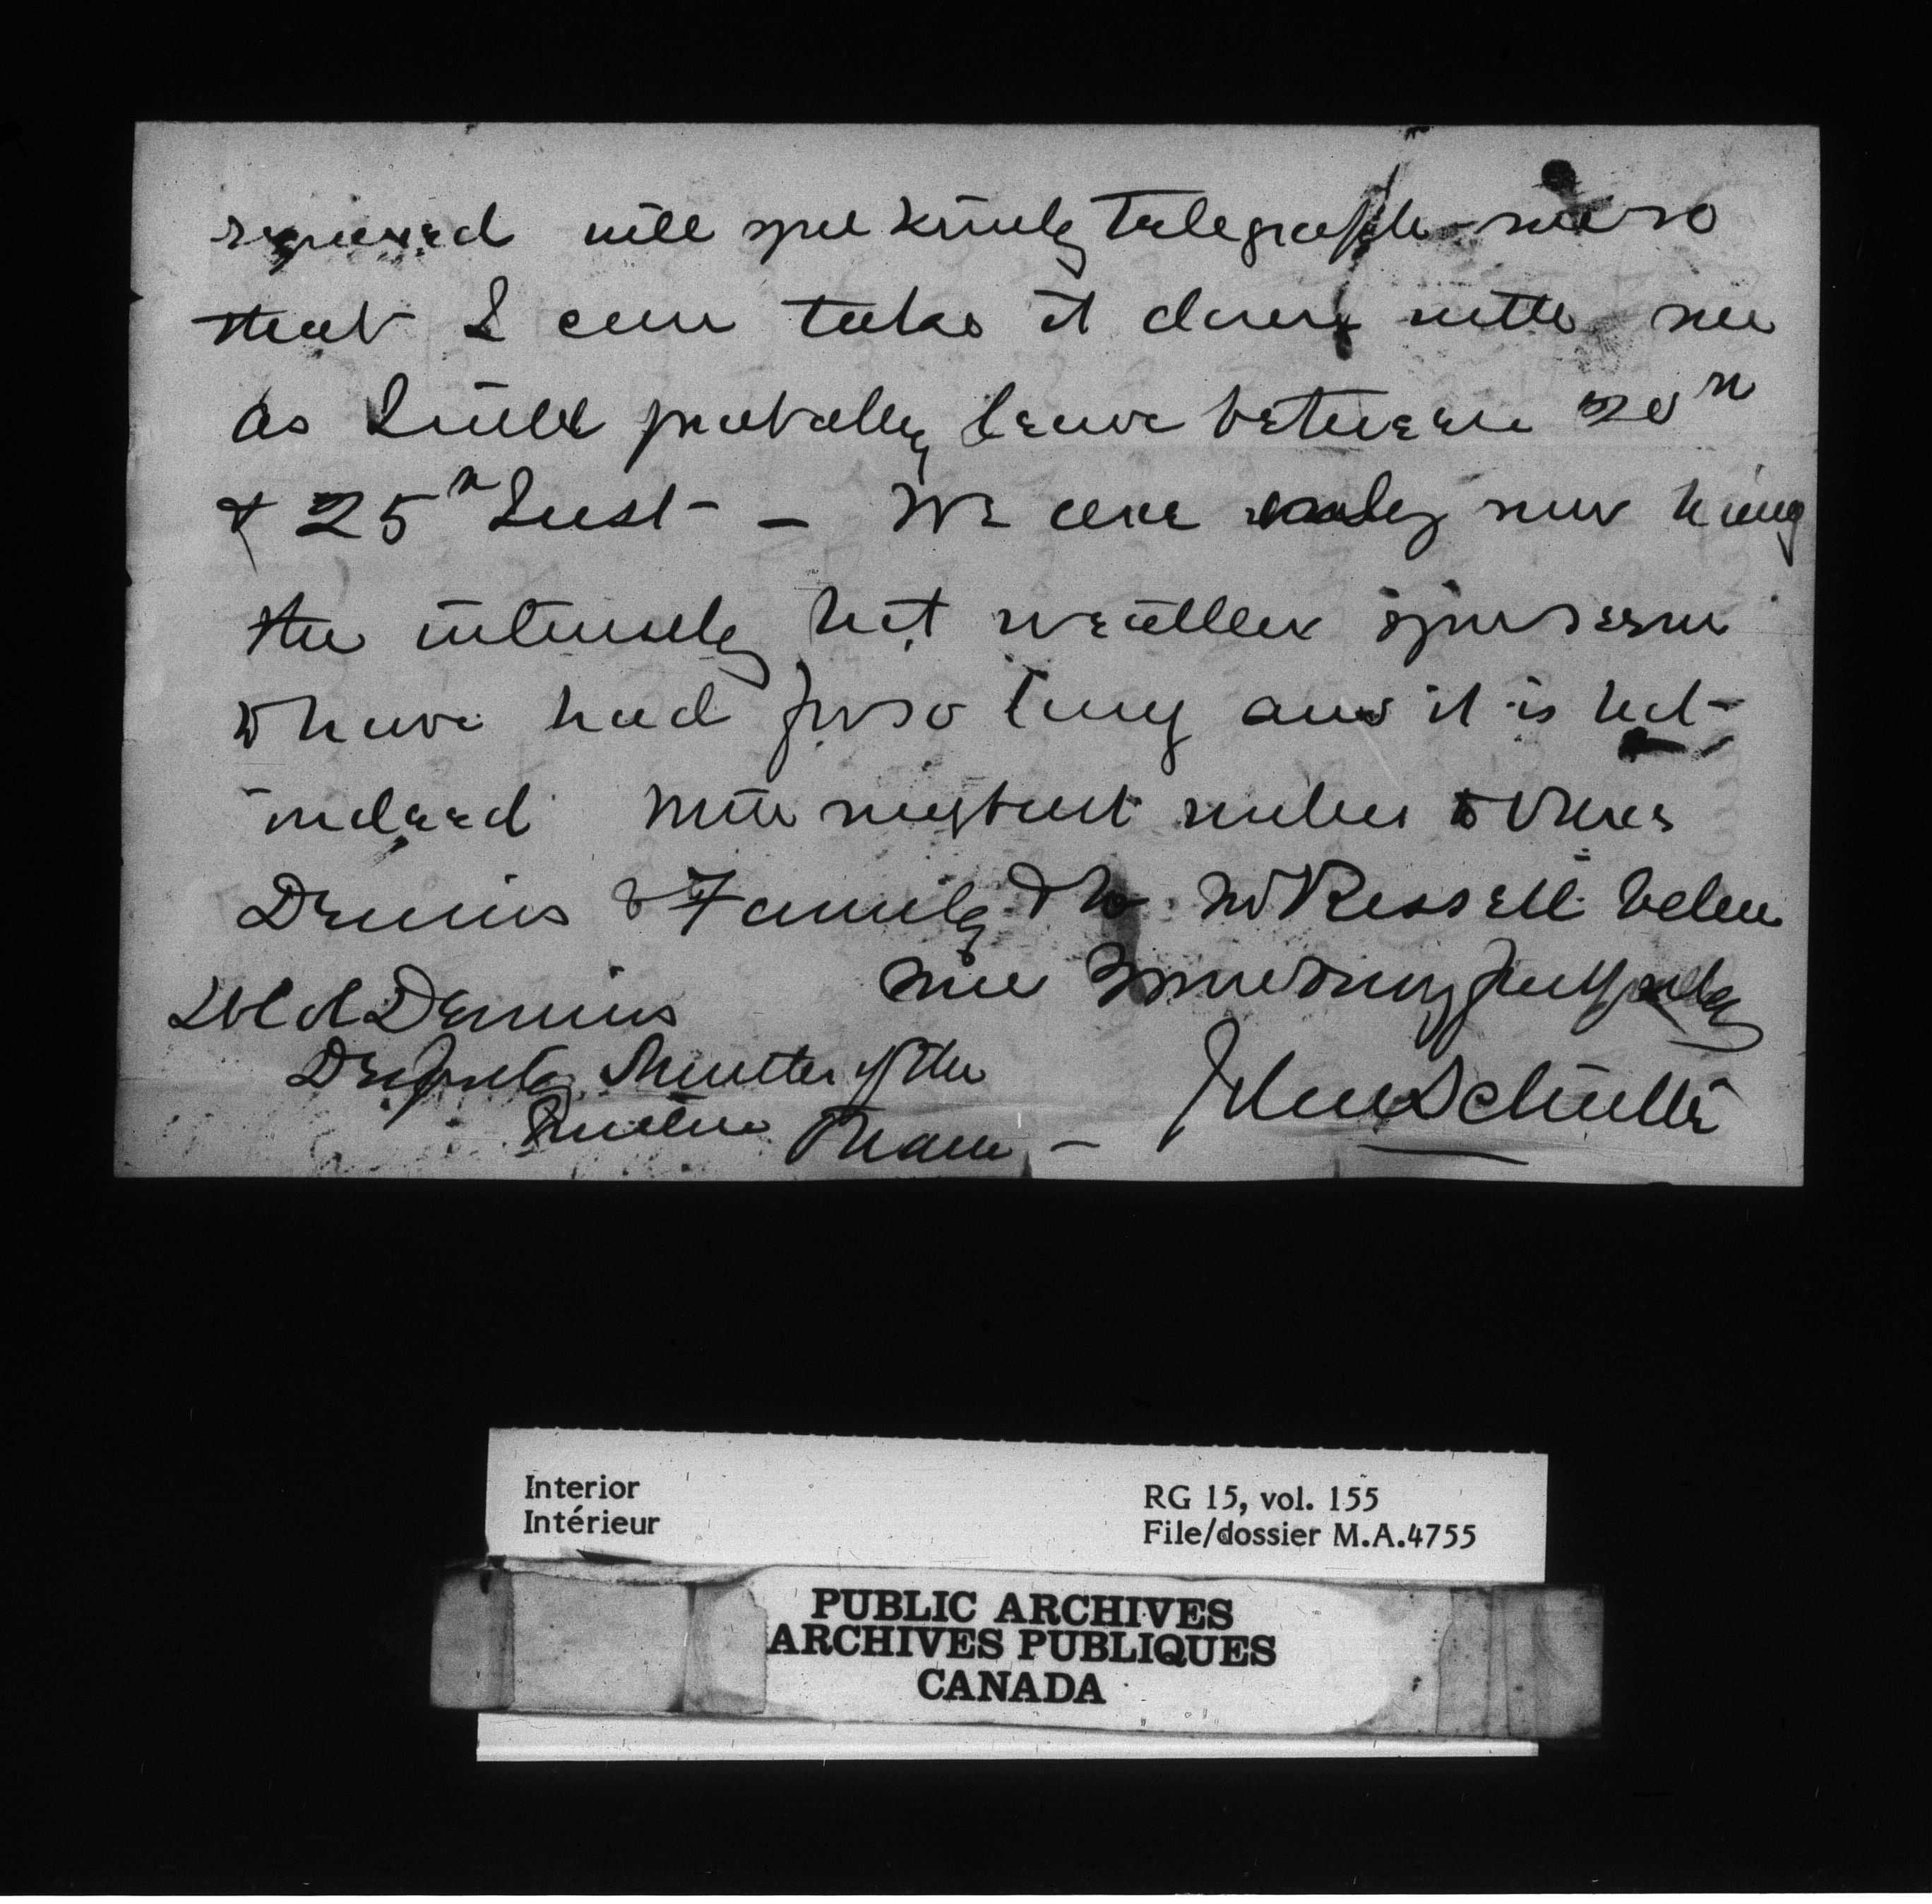 required will you kindly telegraph me so
that I can take it down with me
as I will probably leave between 20th
& 25th Inst - We are only now having
the intensely hot weather you seem
to have had for so long and it is hot
indeed With my best wishes to Mrs
Dennis & Family & to Mr Russell believe
me Yours very faithfully
Col Dennis
Deputy Minister of the
Interior Ottawa -
John Schultz
Interior
Intérieur
RG 15, vol. 155
File/dossier M.A.4755
PUBLIC ARCHIVES
ARCHIVES PUBLIQUES
CANADA